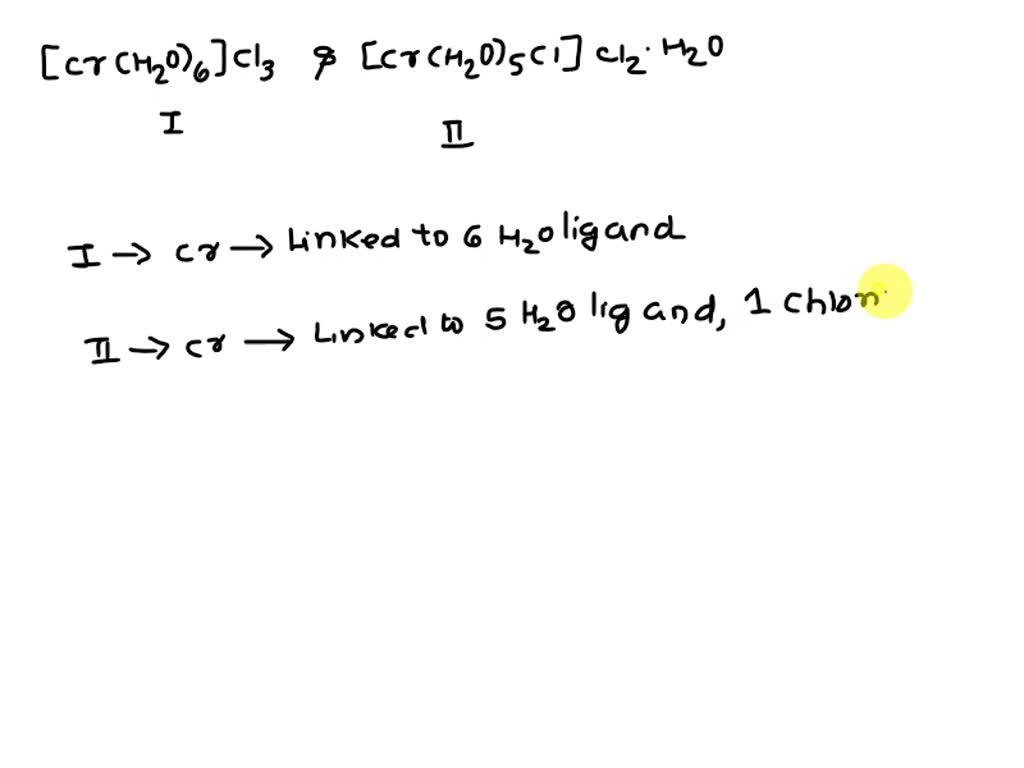 [Cr(H₂O)₆]Cl₃ & [Cr(H₂O)₅Cl]Cl₂·H₂O
I II
I → Cr → Linked to 6 H₂O ligand
II → Cr → Linked to 5 H₂O ligand, 1 chlori